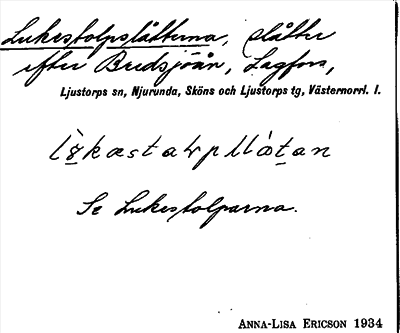 Lukestolpslåtterna, slåtter
efter Bredsjöån, Lagfors,
Ljustorps sn, Njurunda, Sköns och Ljustorps tg, Västernorrl. l.
Se Lukestolparna.
ANNA-LISA ERICSON 1934